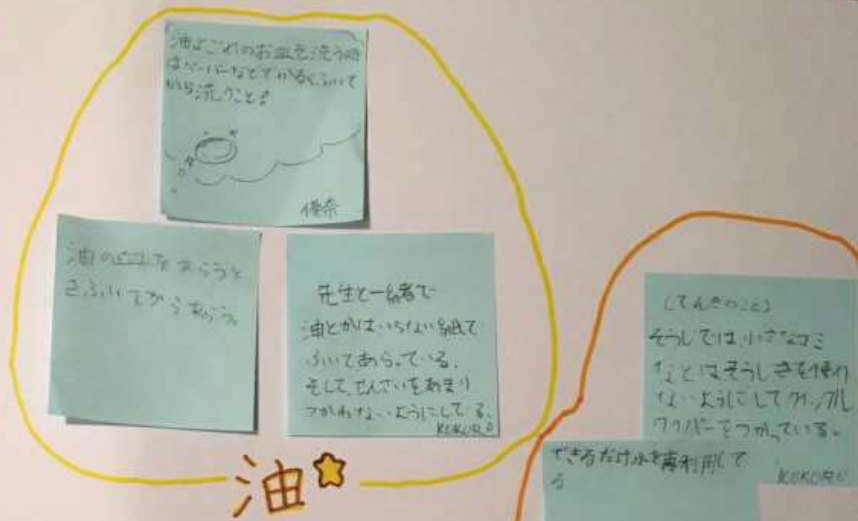 油よごれのお皿を洗う時
はペーパーなどでかるくふいて
から洗うこと!
優奈
油の皿をあらうと
きふいてからあらう。
先生と一緒で
油とかはいらない紙で
ふいてあらっている。
そして、せんざいをあまり
つかわないようにしてる。
KOKORO
油
(でんきのこと)
そうじでは小さなゴミ
などはそうじきを使わ
ないようにしてクイックル
ワイパーをつかっている。
KOKORO
できるだけ水を再利用して
る